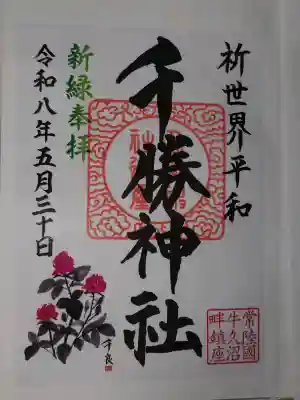 祈世界平和
千勝神社
新緑奉拝
令和八年五月三十日
常陸國
牛久沼
畔鎮座